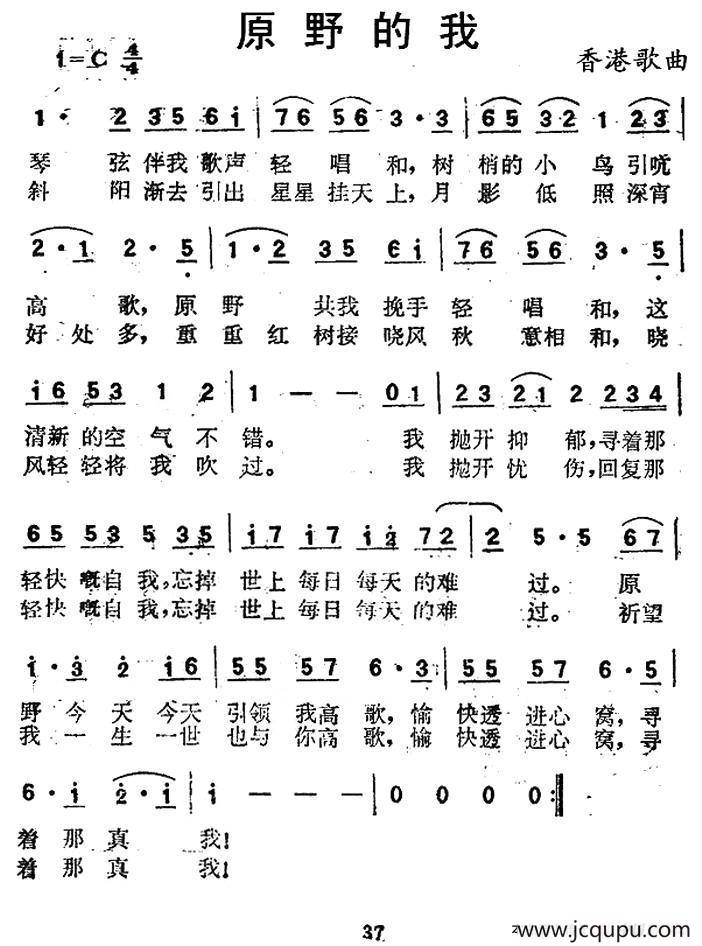 原野的我
1=C 4/4 香港歌曲
1· 2 35 6i | 76 56 3·3 | 65 32 1 23 |
琴 弦伴我歌声轻 唱 和,树 梢的小 鸟引吭
斜 阳渐去引出 星星挂天上,月 影 低 照深宵
2·1 2·5 | 1·2 35 6i | 76 56 3·5 |
高 歌,原野 共我挽手轻 唱 和,这
好处多,重重红 树接晓风秋 意相和,晓
i6 53 1 2 | 1 — — 01 | 23 21 2 234 |
清新的空气不错。 我 抛开抑 郁,寻着那
风轻轻将我吹过。 我 抛开忧 伤,回复那
65 53 5 35 | i7 i7 i2 72 | 2 5·5 67 |
轻快嘅自我,忘掉 世上每日每天的难 过。 原
轻快嘅自我,忘掉 世上每日每天的难 过。 祈望
i·3 2 i6 | 55 57 6·3 | 55 57 6·5 |
野今天今天引领我高歌,愉快透进心窝,寻
我一生一世也与你高歌,愉快透进心窝,寻
6·i 2·i | i — — — | 0 0 0 0 :‖
着那真 我!
着那真 我!
37
www.jcqupu.com